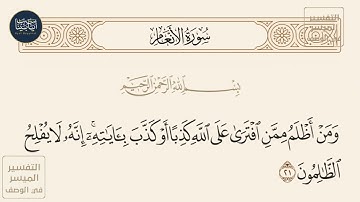 سُورَةُ الأَنْعَامِ
بِسْمِ اللَّهِ الرَّحْمَٰنِ الرَّحِيمِ
وَمَنْ أَظْلَمُ مِمَّنِ ٱفْتَرَىٰ عَلَى ٱللَّهِ كَذِبًا أَوْ كَذَّبَ بِـَٔايَٰتِهِۦٓ ۗ إِنَّهُۥ لَا يُفْلِحُ
ٱلظَّٰلِمُونَ ٢١
التفسير
الميسر
في الوصف